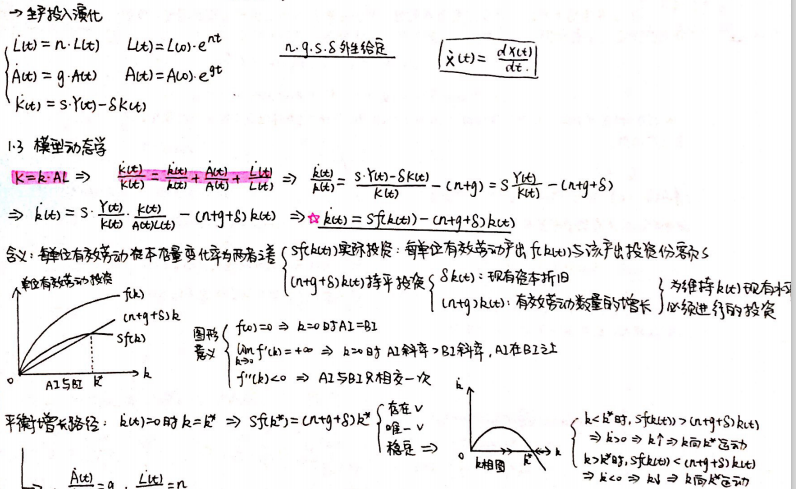 → 生产投入演化
L̇(t) = n·L(t)  L(t)=L(0)·e^{nt}
Ȧ(t) = g·A(t)  A(t)=A(0)·e^{gt}
K̇(t) = S·Y(t)-δK(t)
n.g.s.δ外生给定
ẋ(t) = dX(t)/dt.
1.3 模型动态学
K=k·AL ⇒ K̇(t)/K(t) = k̇(t)/k(t) + Ȧ(t)/A(t) + L̇(t)/L(t) ⇒ k̇(t)/k(t) = S·Y(t)-δK(t)/K(t) - (n+g) = S Y(t)/K(t) - (n+g+δ)
⇒ k̇(t) = S· Y(t)/K(t) · K(t)/A(t)L(t) - (n+g+δ) k(t) ⇒ ☆ k̇(t) = Sf(k(t)) - (n+g+δ) k(t)
含义: 每单位有效劳动资本存量变化率为两者之差
Sf(k(t)) 实际投资: 每单位有效劳动产出 f(k(t)) 与该产出投资份额 S
(n+g+δ) k(t) 持平投资
δk(t): 现有资本折旧
(n+g) k(t): 有效劳动数量的增长
为维持k(t)现有水平
必须进行的投资
单位有效劳动投资
f(k)
(n+g+δ) k
Sf(k)
0
AI与BI
k*
k
图形
意义
f(0)=0 ⇒ k=0时AI=BI
lim k→0 f'(k) = +∞ ⇒ k=0时 AI斜率>BI斜率, AI在BI之上
f''(k)<0 ⇒ AI与BI只相交一次
平衡增长路径: k̇(t)=0时 k=k* ⇒ Sf(k*) = (n+g+δ) k*
存在 ∨
唯一 ∨
稳定 ⇒
k̇
0
k相图
k*
k
k<k*时, Sf(k(t)) > (n+g+δ) k(t)
⇒ k̇>0 ⇒ k↑ ⇒ k向k*运动
k>k*时, Sf(k(t)) < (n+g+δ) k(t)
⇒ k̇<0 ⇒ k↓ ⇒ k向k*运动
Ȧ(t) = g  L̇(t) = n